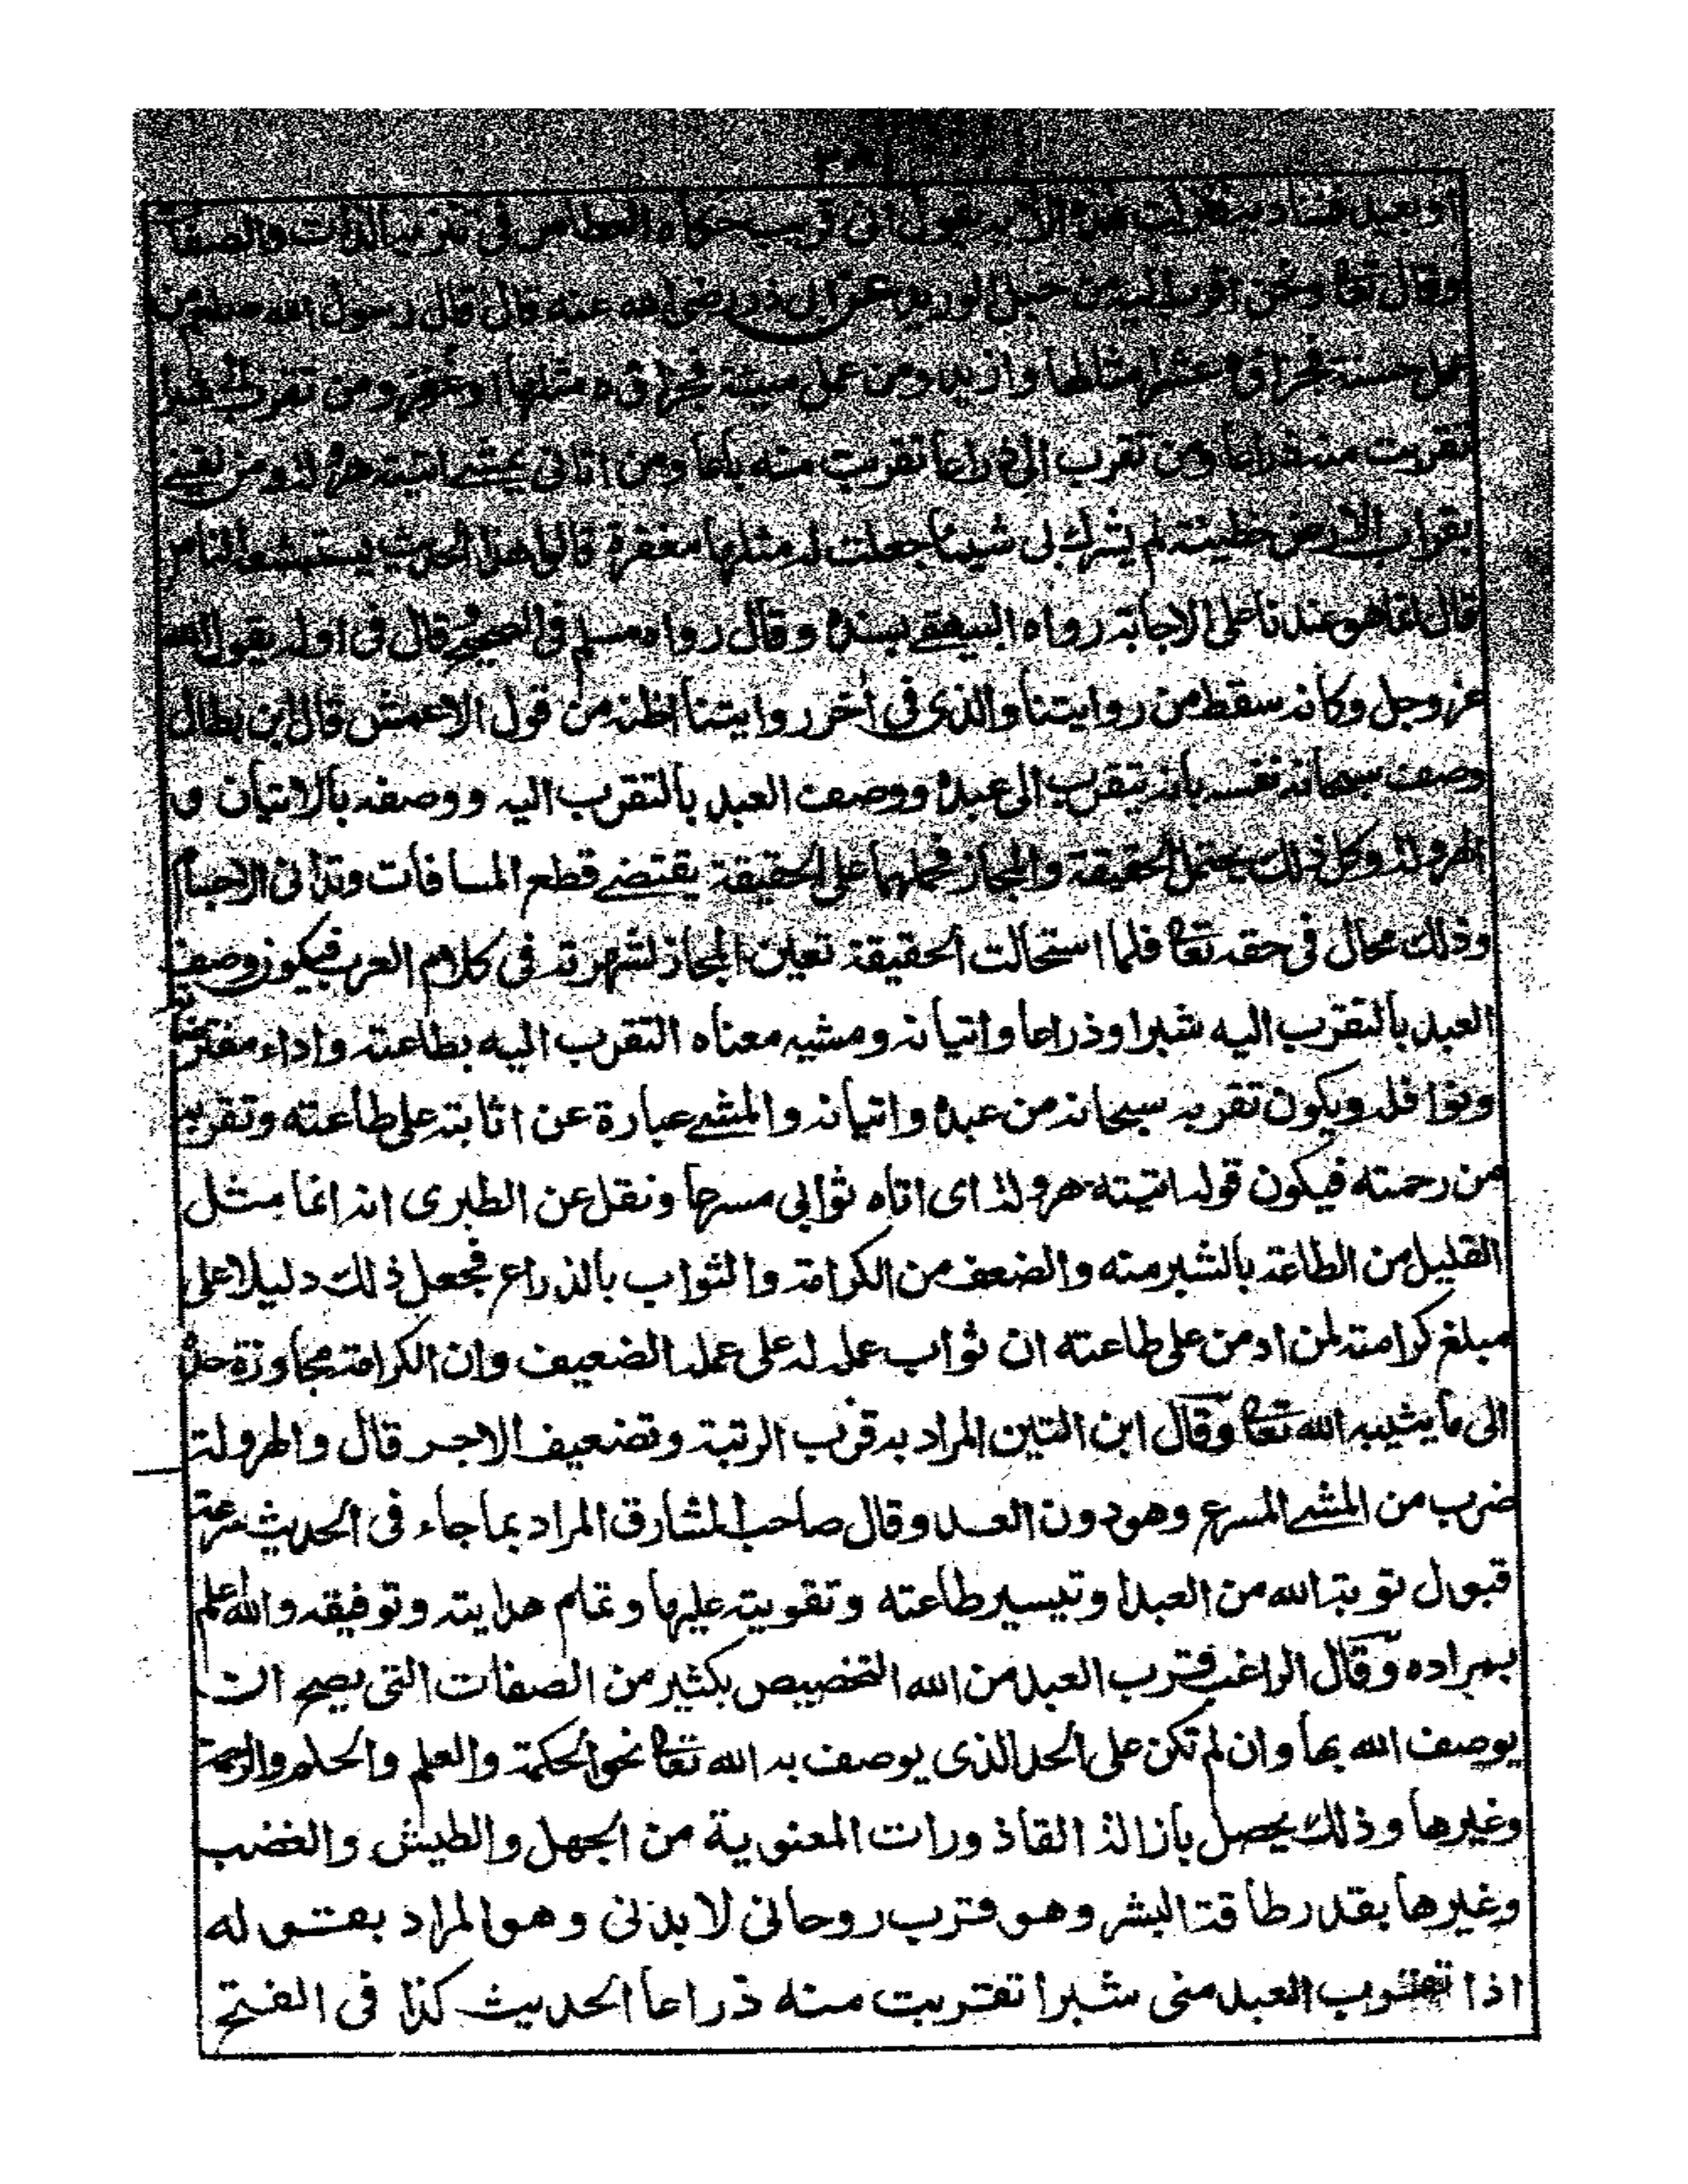 او بعيد فنناديه فنزلت هذه الآية يقول انى قريب حكاه فى تنزيه الذات والصفات
وقال تعا ونحن اقرب اليه من حبل الوريد عن ابى ذر رضى الله عنه قال قال رسول الله صلعم من
عمل حسنة فجزاؤه عشر امثالها وازيد ومن عمل سيئة فجزاؤه مثلها او غفر ومن تقرب الى شبرا
تقربت منه ذراعا ومن تقرب الى ذراعا تقربت منه باعا ومن اتانى يمشى اتيته هرولة ومن لقينى
بقراب الارض خطيئة لم يشرك بى شيئا جعلت له مثلها مغفرة قالوا هذا الحديث يستبشعه الناس
قال انما هو عندنا على الاجابة رواه البيهقى بسنده وقال رواه مسلم فى الصحيح وقال فى اوله يقول الله
عز وجل وكانه سقط من روايتنا والذى فى اخر روايتنا اظنه من قول الاعمش قال ابن بطال
وصف سبحانه نفسه بانه يتقرب الى عبده ووصف العبد بالتقرب اليه ووصفه بالاتيان و
الهرولة وكل ذلك يحتمل الحقيقة والمجاز فحملها على الحقيقة يقتضى قطع المسافات وتدانى الاجسام
وذلك محال فى حقه تعا فلما استحالت الحقيقة تعين المجاز لشهرته فى كلام العرب فيكون وصف
العبد بالتقرب اليه شبرا وذراعا واتيانه ومشيه معناه التقرب اليه بطاعته واداء مفترضاته
ونوافله ويكون تقربه سبحانه من عبده واتيانه والمشى عبارة عن اثابته على طاعته وتقربه
من رحمته فيكون قوله اتيته هرولة اى اتاه ثوابى مسرعا ونقل عن الطبرى انه انما مثل
القليل من الطاعة بالشبر منه والضعف من الكرامة والثواب بالذراع فجعل ذلك دليلا على
مبلغ كرامته لمن ادمن على طاعته ان ثواب عمله له على عمله الضعيف وان الكرامة مجاوزة حده
الى ما يثيبه الله تعا وقال ابن التين المراد به قرب الرتبة وتضعيف الاجر قال والهرولة
ضرب من المشى المسرع وهو دون العدو وقال صاحب المشارق المراد بما جاء فى الحديث سرعة
قبول توبة الله من العبد او تيسير طاعته وتقويته عليها وتمام هدايته وتوفيقه والله اعلم
بمراده وقال الراغب قرب العبد من الله التخصيص بكثير من الصفات التى يصح ان
يوصف الله بها وان لم تكن على الحد الذى يوصف به الله تعا نحو الحكمة والعلم والحلم والرحمة
وغيرها وذلك يحصل بازالة القاذورات المعنوية من الجهل والطيش والغضب
وغيرها بقدر طاقة البشر وهو قرب روحانى لا بدنى وهو المراد بقوله
اذا تقرب العبد منى شبرا تقربت منه ذراعا الحديث كذا فى الفتح